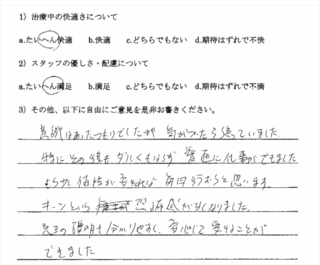 1）治療中の快適さについて
a.たいへん快適 b.快適 c.どちらでもない d.期待はずれで不快
2）スタッフの優しさ・配慮について
a.たいへん満足 b.満足 c.どちらでもない d.期待はずれで不満
3）その他、以下に自由にご意見を是非お書きください。
意識はあったつもりでしたが 気がついたら 終っていました
特に その後も 少しくもらず 普通に 仕事ができました
もう少し 価格が 安ければ 毎回 行むうと 思います
キーンという 恐怖感が なくなりました。
先生の 説明も 分かりやすく、安心して 受けることが
できました